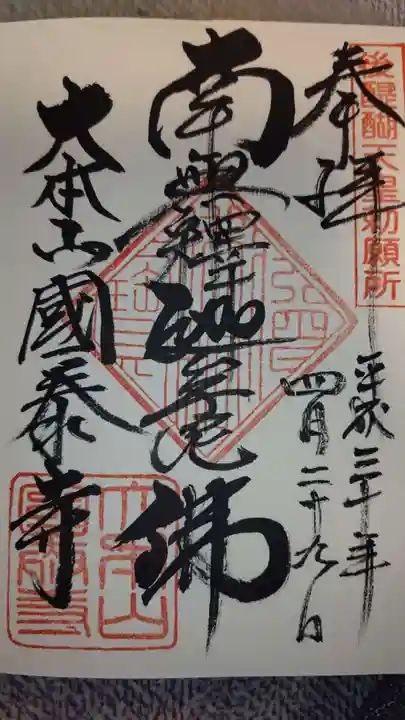 後醍醐天皇勅願所
奉拝
平成三十年
四月二十九日
南無釋迦牟尼佛
大本山國泰寺